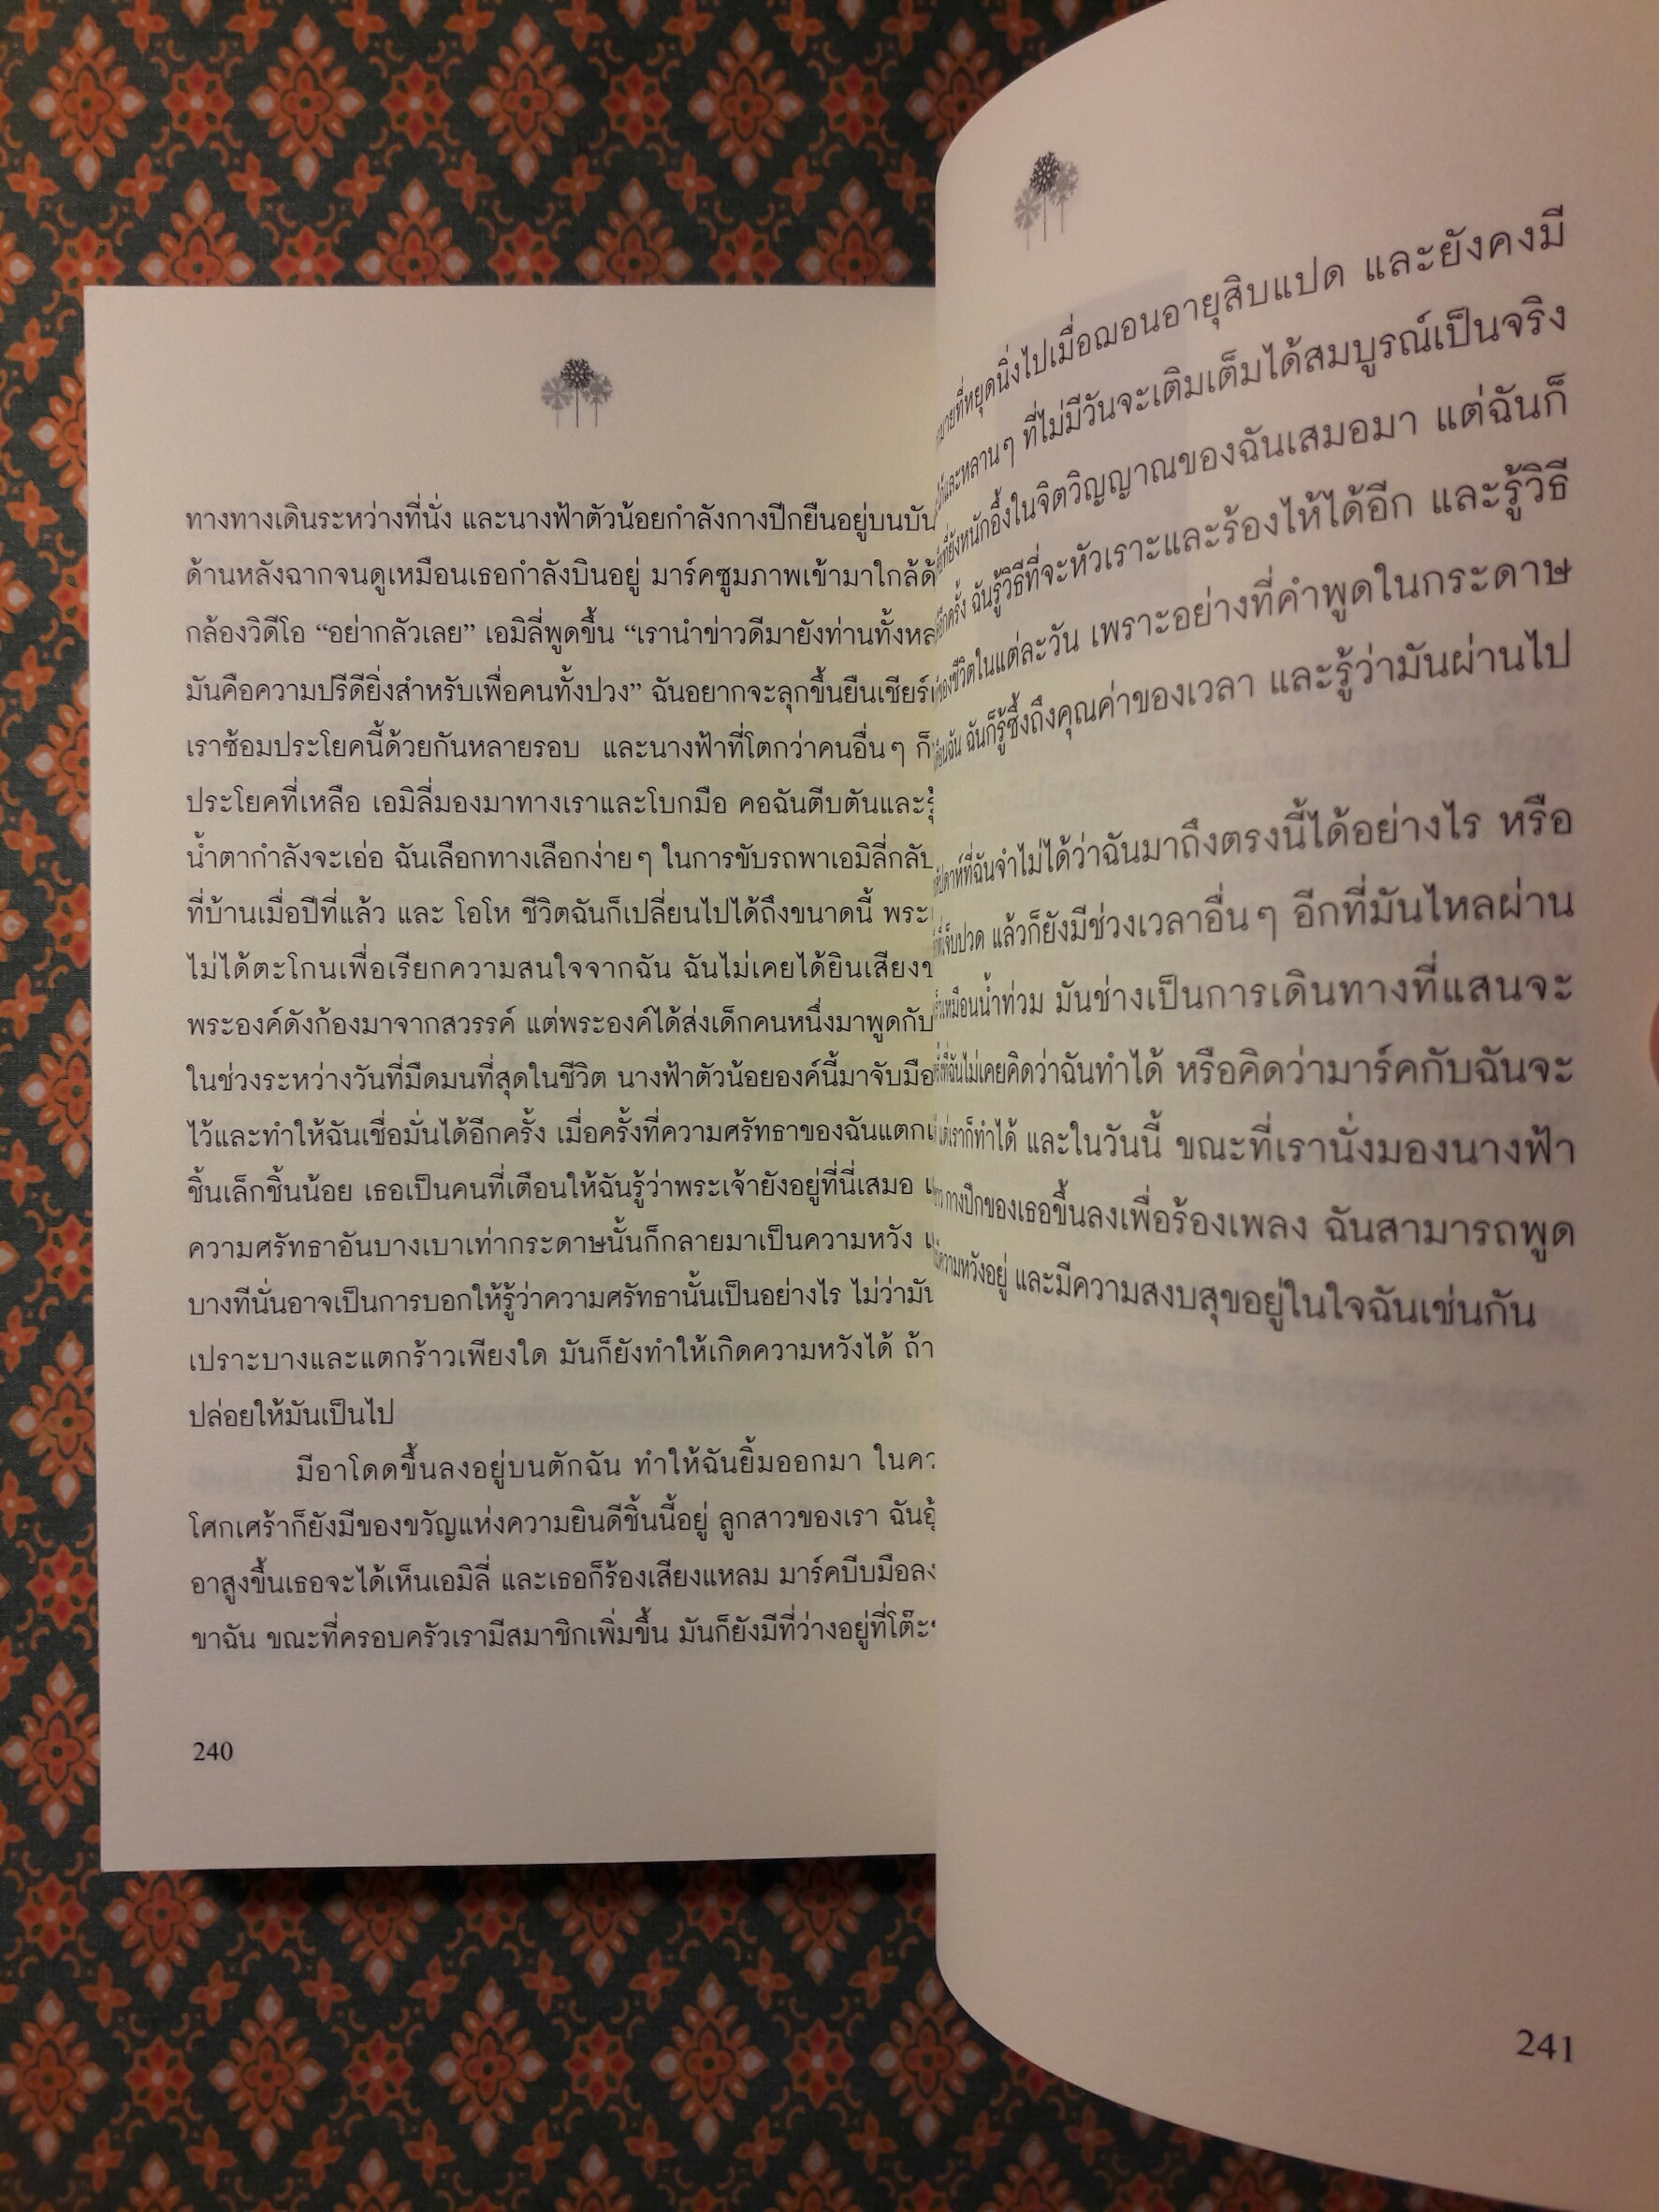 ทางทางเดินระหว่างที่นั่ง และนางฟ้าตัวน้อยกำลังกางปีกยืนอยู่บนบัน
ด้านหลังฉากจนดูเหมือนเธอกำลังบินอยู่ มาร์คซูมภาพเข้ามาใกล้ด้
กล้องวิดีโอ “อย่ากลัวเลย” เอมิลี่พูดขึ้น “เรานำข่าวดีมายังท่านทั้งหล
มันคือความปรีดียิ่งสำหรับเพื่อคนทั้งปวง” ฉันอยากจะลุกขึ้นยืนเชียร์
เราซ้อมประโยคนี้ด้วยกันหลายรอบ และนางฟ้าที่โตกว่าคนอื่นๆ ก็
ประโยคที่เหลือ เอมิลี่มองมาทางเราและโบกมือ คอฉันตีบตันและรู้
น้ำตากำลังจะเอ่อ ฉันเลือกทางเลือกง่ายๆ ในการขับรถพาเอมิลี่กลับ
ที่บ้านเมื่อปีที่แล้ว และ โอโห ชีวิตฉันก็เปลี่ยนไปได้ถึงขนาดนี้ พระ
ไม่ได้ตะโกนเพื่อเรียกความสนใจจากฉัน ฉันไม่เคยได้ยินเสียง
พระองค์ดังก้องมาจากสวรรค์ แต่พระองค์ได้ส่งเด็กคนหนึ่งมาพูดกับ
ในช่วงระหว่างวันที่มืดมนที่สุดในชีวิต นางฟ้าตัวน้อยองค์นี้มาจับมือ
ไว้และทำให้ฉันเชื่อมั่นได้อีกครั้ง เมื่อครั้งที่ความศรัทธาของฉันแตก
ชิ้นเล็กชิ้นน้อย เธอเป็นคนที่เตือนให้ฉันรู้ว่าพระเจ้ายังอยู่ที่นี่เสมอ
ความศรัทธาอันบางเบาเท่ากระดาษนั้นก็กลายมาเป็นความหวัง
บางทีนั่นอาจเป็นการบอกให้รู้ว่าความศรัทธานั้นเป็นอย่างไร ไม่ว่ามัน
เปราะบางและแตกร้าวเพียงใด มันก็ยังทำให้เกิดความหวังได้ ถ้า
ปล่อยให้มันเป็นไป
มีอาโดดขึ้นลงอยู่บนตักฉัน ทำให้ฉันยิ้มออกมา ในคว
โศกเศร้าก็ยังมีของขวัญแห่งความยินดีชิ้นนี้อยู่ ลูกสาวของเรา ฉันอุ้
อาสูงขึ้นเธอจะได้เห็นเอมิลี่ และเธอก็ร้องเสียงแหลม มาร์คบีบมือลง
ขาฉัน ขณะที่ครอบครัวเรามีสมาชิกเพิ่มขึ้น มันก็ยังมีที่ว่างอยู่ที่โต๊ะ
240
ที่หยุดนิ่งไปเมื่อฌอนอายุสิบแปด และยังคงมี
และหลานๆ ที่ไม่มีวันจะเติมเต็มได้สมบูรณ์เป็นจริง
ที่ยังหนักอึ้งในจิตวิญญาณของฉันเสมอมา แต่ฉันก็
อีกครั้ง ฉันรู้วิธีที่จะหัวเราะและร้องไห้ได้อีก และรู้วิธี
ของชีวิตในแต่ละวัน เพราะอย่างที่คำพูดในกระดาษ
ฉัน ฉันก็รู้ซึ้งถึงคุณค่าของเวลา และรู้ว่ามันผ่านไป
ที่ฉันจำไม่ได้ว่าฉันมาถึงตรงนี้ได้อย่างไร หรือ
เจ็บปวด แล้วก็ยังมีช่วงเวลาอื่นๆ อีกที่มันไหลผ่าน
เหมือนน้ำท่วม มันช่างเป็นการเดินทางที่แสนจะ
ที่ฉันไม่เคยคิดว่าฉันทำได้ หรือคิดว่ามาร์คกับฉันจะ
แต่เราก็ทำได้ และในวันนี้ ขณะที่เรานั่งมองนางฟ้า
กางปีกของเธอขึ้นลงเพื่อร้องเพลง ฉันสามารถพูด
ความหวังอยู่ และมีความสงบสุขอยู่ในใจฉันเช่นกัน
241